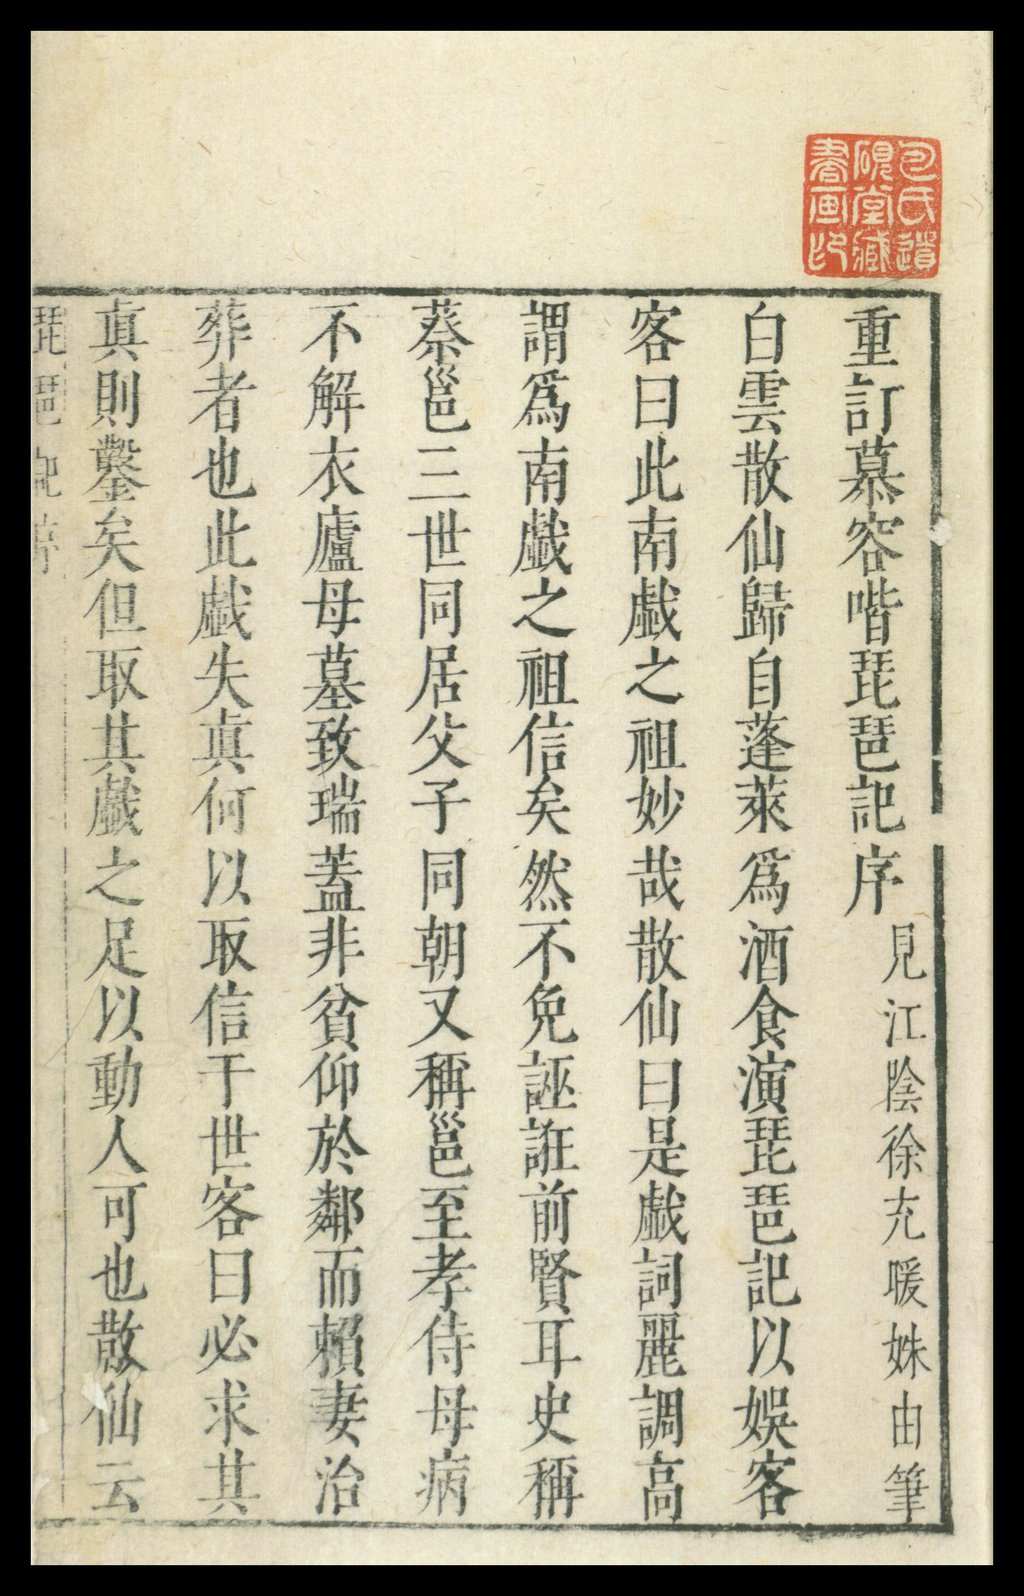 包氏遺硯堂藏書画印
重訂慕容喈琵琶記序 見江陰徐充暖姝由筆
白雲散仙歸自蓬萊爲酒食演琵琶記以娛客
客曰此南戱之祖妙哉散仙曰是戱詞麗調高
謂爲南戱之祖信矣然不免誣誑前賢耳史稱
蔡邕三世同居父子同朝又稱邕至孝侍母病
不解衣廬母墓致瑞蓋非貧仰於鄰而賴妻治
葬者也此戱失眞何以取信于世客曰必求其
眞則鑿矣但取其戱之足以動人可也散仙云
琵琶記序